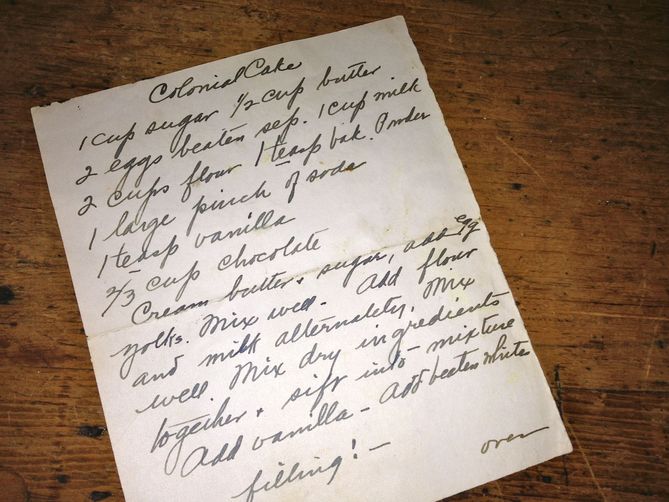 Colonial Cake
1 cup sugar 1/2 cup butter
2 eggs beaten sep. 1 cup milk
2 cups flour 1 teasp bak. Powder
1 large pinch of soda
1 teasp vanilla
2/3 cup chocolate
Cream butter + sugar, add egg
yolks. Mix well. Add flour
and milk alternately. Mix
well. Mix dry ingredients
together + sift into mixture
Add vanilla - Add beaten whites
filling! -
over